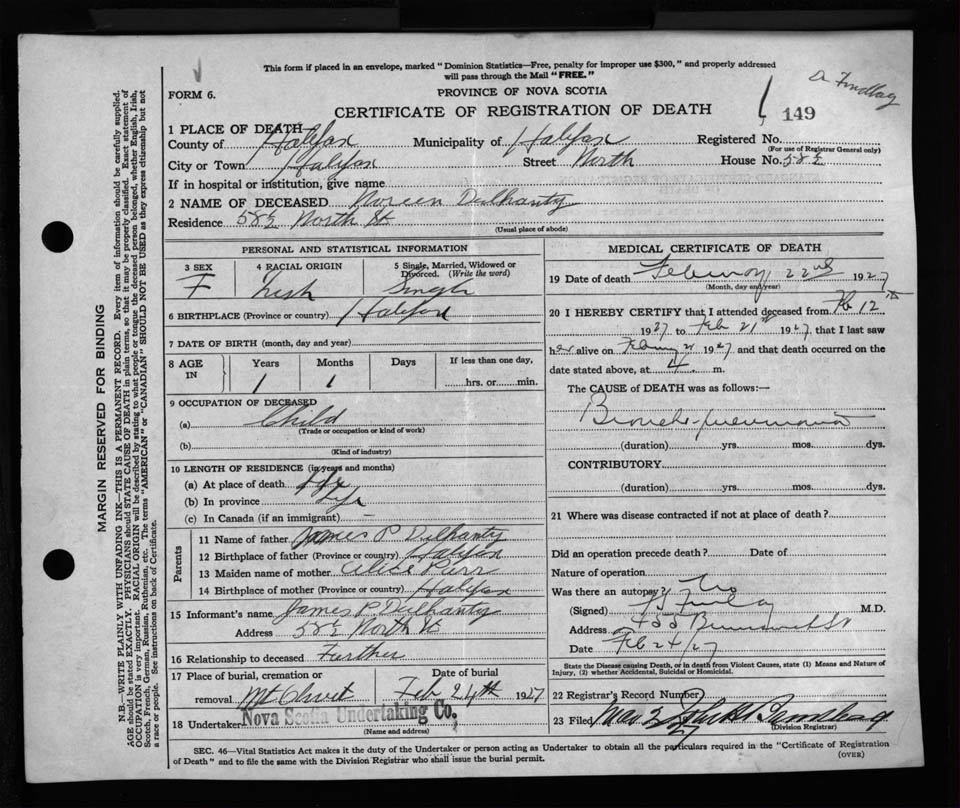 This form if placed in an envelope, marked "Dominion Statistics—Free, penalty for improper use $300," and properly addressed
will pass through the Mail "FREE."
FORM 6.
PROVINCE OF NOVA SCOTIA
CERTIFICATE OF REGISTRATION OF DEATH
149
1 PLACE OF DEATH—
County of Halifax Municipality of Halifax Registered No.
(For use of Registrar General only)
City or Town Halifax Street North House No. 58½
If in hospital or institution, give name
2 NAME OF DECEASED Noreen Dulhanty
Residence 58½ North St
(Usual place of abode)
PERSONAL AND STATISTICAL INFORMATION
3 SEX
F
4 RACIAL ORIGIN
Irish
5 Single, Married, Widowed or
Divorced. (Write the word)
Single
6 BIRTHPLACE (Province or country) Halifax
7 DATE OF BIRTH (month, day and year)
8 AGE IN
Years Months Days If less than one day,
1 1 hrs. or min.
9 OCCUPATION OF DECEASED
(a) Child
(Trade or occupation or kind of work)
(b)
(Kind of industry)
10 LENGTH OF RESIDENCE (in years and months)
(a) At place of death life
(b) In province life
(c) In Canada (if an immigrant) —
Parents
11 Name of father James P Dulhanty
12 Birthplace of father (Province or country) Halifax
13 Maiden name of mother
14 Birthplace of mother (Province or country) Halifax
15 Informant's name James P. Dulhanty
Address 58½ North St
16 Relationship to deceased Farther
17 Place of burial, cremation or Date of burial
removal Mt Olivet Feb 24th 1927
18 Undertaker Nova Scotia Undertaking Co.
(Name and address)
MEDICAL CERTIFICATE OF DEATH
19 Date of death February 22nd 1927
(Month, day and year)
20 I HEREBY CERTIFY that I attended deceased from Fb 12th
1927 to Feb 21st 1927, that I last saw
her alive on February 21 1927 and that death occurred on the
date stated above, at 4 m.
The CAUSE of DEATH was as follows:—
Broncho-pneumonia
(duration) yrs. mos. dys.
CONTRIBUTORY
(duration) yrs. mos. dys.
21 Where was disease contracted if not at place of death?
Did an operation precede death? Date of
Nature of operation
Was there an autopsy? No
(Signed) M.D.
Address Brunswick St
Date Feb 24/27
State the Disease causing Death, or in death from Violent Causes, state (1) Means and Nature of
Injury, (2) whether Accidental, Suicidal or Homicidal.
22 Registrar's Record Number
23 Filed
(Division Registrar)
SEC. 46—Vital Statistics Act makes it the duty of the Undertaker or person acting as Undertaker to obtain all the particulars required in the "Certificate of Registration
of Death" and to file the same with the Division Registrar who shall issue the burial permit.
(OVER)
MARGIN RESERVED FOR BINDING
N.B.—WRITE PLAINLY, WITH UNFADING INK—THIS IS A PERMANENT RECORD. Every item of information should be carefully supplied.
AGE should be stated EXACTLY. PHYSICIANS should STATE CAUSE OF DEATH in plain terms, so that it may be properly classified. Exact statement of
OCCUPATION is very important. RACIAL ORIGIN will be described by stating to what people or tongue the deceased person belonged, whether English, Irish,
Scotch, French, German, Russian, Ruthenian, etc. The terms "AMERICAN" or "CANADIAN" SHOULD NOT BE USED as they express citizenship but not
a race or people. See instructions on back of Certificate.